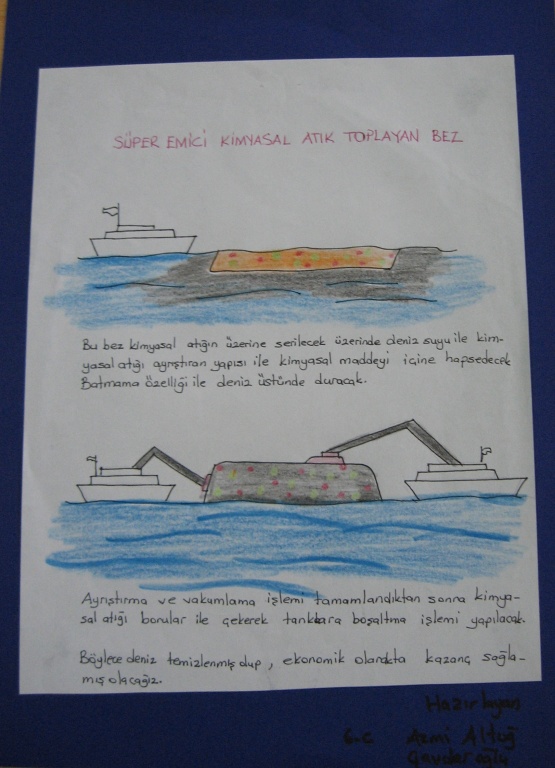 SÜPER EMİCİ KİMYASAL ATIK TOPLAYAN BEZ
Bu bez kimyasal atığın üzerine serilecek üzerinde deniz suyu ile kim-
yasal atığı ayrıştıran yapısı ile kimyasal maddeyi içine hapsedecek
Batmama özelliği ile deniz üstünde duracak.
Ayrıştırma ve vakumlama işlemi tamamlandıktan sonra kimya-
sal atığı borular ile çekerek tanklara boşaltma işlemi yapılacak.
Böylece deniz temizlenmiş olup, ekonomik olarakta kazanç sağla-
mış olacağız.
Hazırlayan
6-C Azmi Altuğ